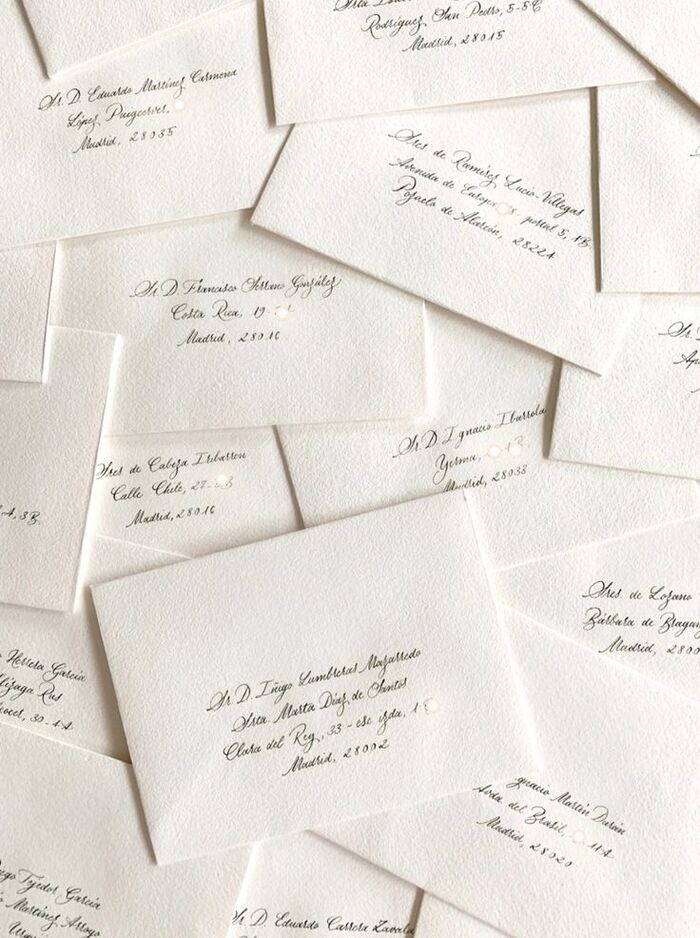 Rodríguez San Pedro, 5-5C
Madrid, 28015
Sr. D. Eduardo Martínez Carmona
López Puigcerver,
Madrid, 28035
Sres de Ramírez Lucio-Villegas
Avenida de Europa 8. portal 5, 1B.
Pozuelo de Alarcón, 28224
Sr. D. Francisco Serrano González
Costa Rica, 19-
Madrid, 28016
Sr. D. Ignacio Ibarrola
Yerma,
Madrid, 28033
Sres de Cabeza Iribarren
Calle Chile, 27-
Madrid, 28016
-A, 3B.
Sres. de Lozano
Bárbara de Bragan
Madrid, 2800
Herrera García
Rus
30-1A
Sr. D. Iñigo Lumbreras Mazarredo
Srta Marta Díaz de Santos
Clara del Rey, 33-esc izda, 1
Madrid, 28002
gnacio Martín Durán
Avda del Brasil, 11A
Madrid, 28020
iego Tejedor García
Martínez Arroyo
Sr. D. Eduardo Carrera Zavala